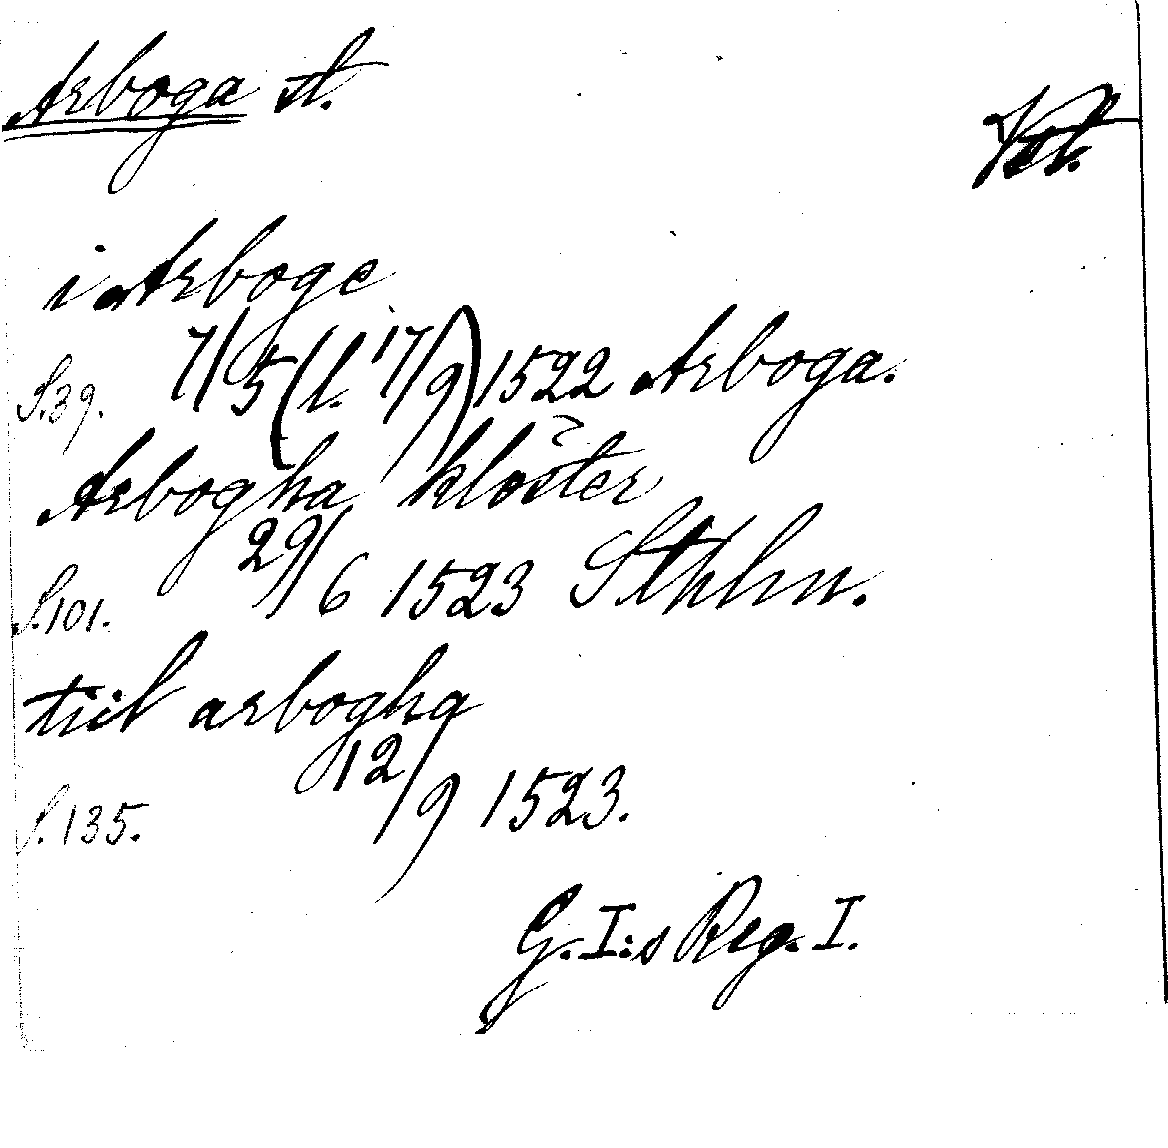 Arboga st.
Vstl.
i Arboge
S.39. 7/5 (l. 17/9) 1522 Arboga.
Arbogha kloster
S.101. 29/6 1523 Sthlm.
tiil arbogha
S.135. 12/9 1523.
G.I:s Reg. I.